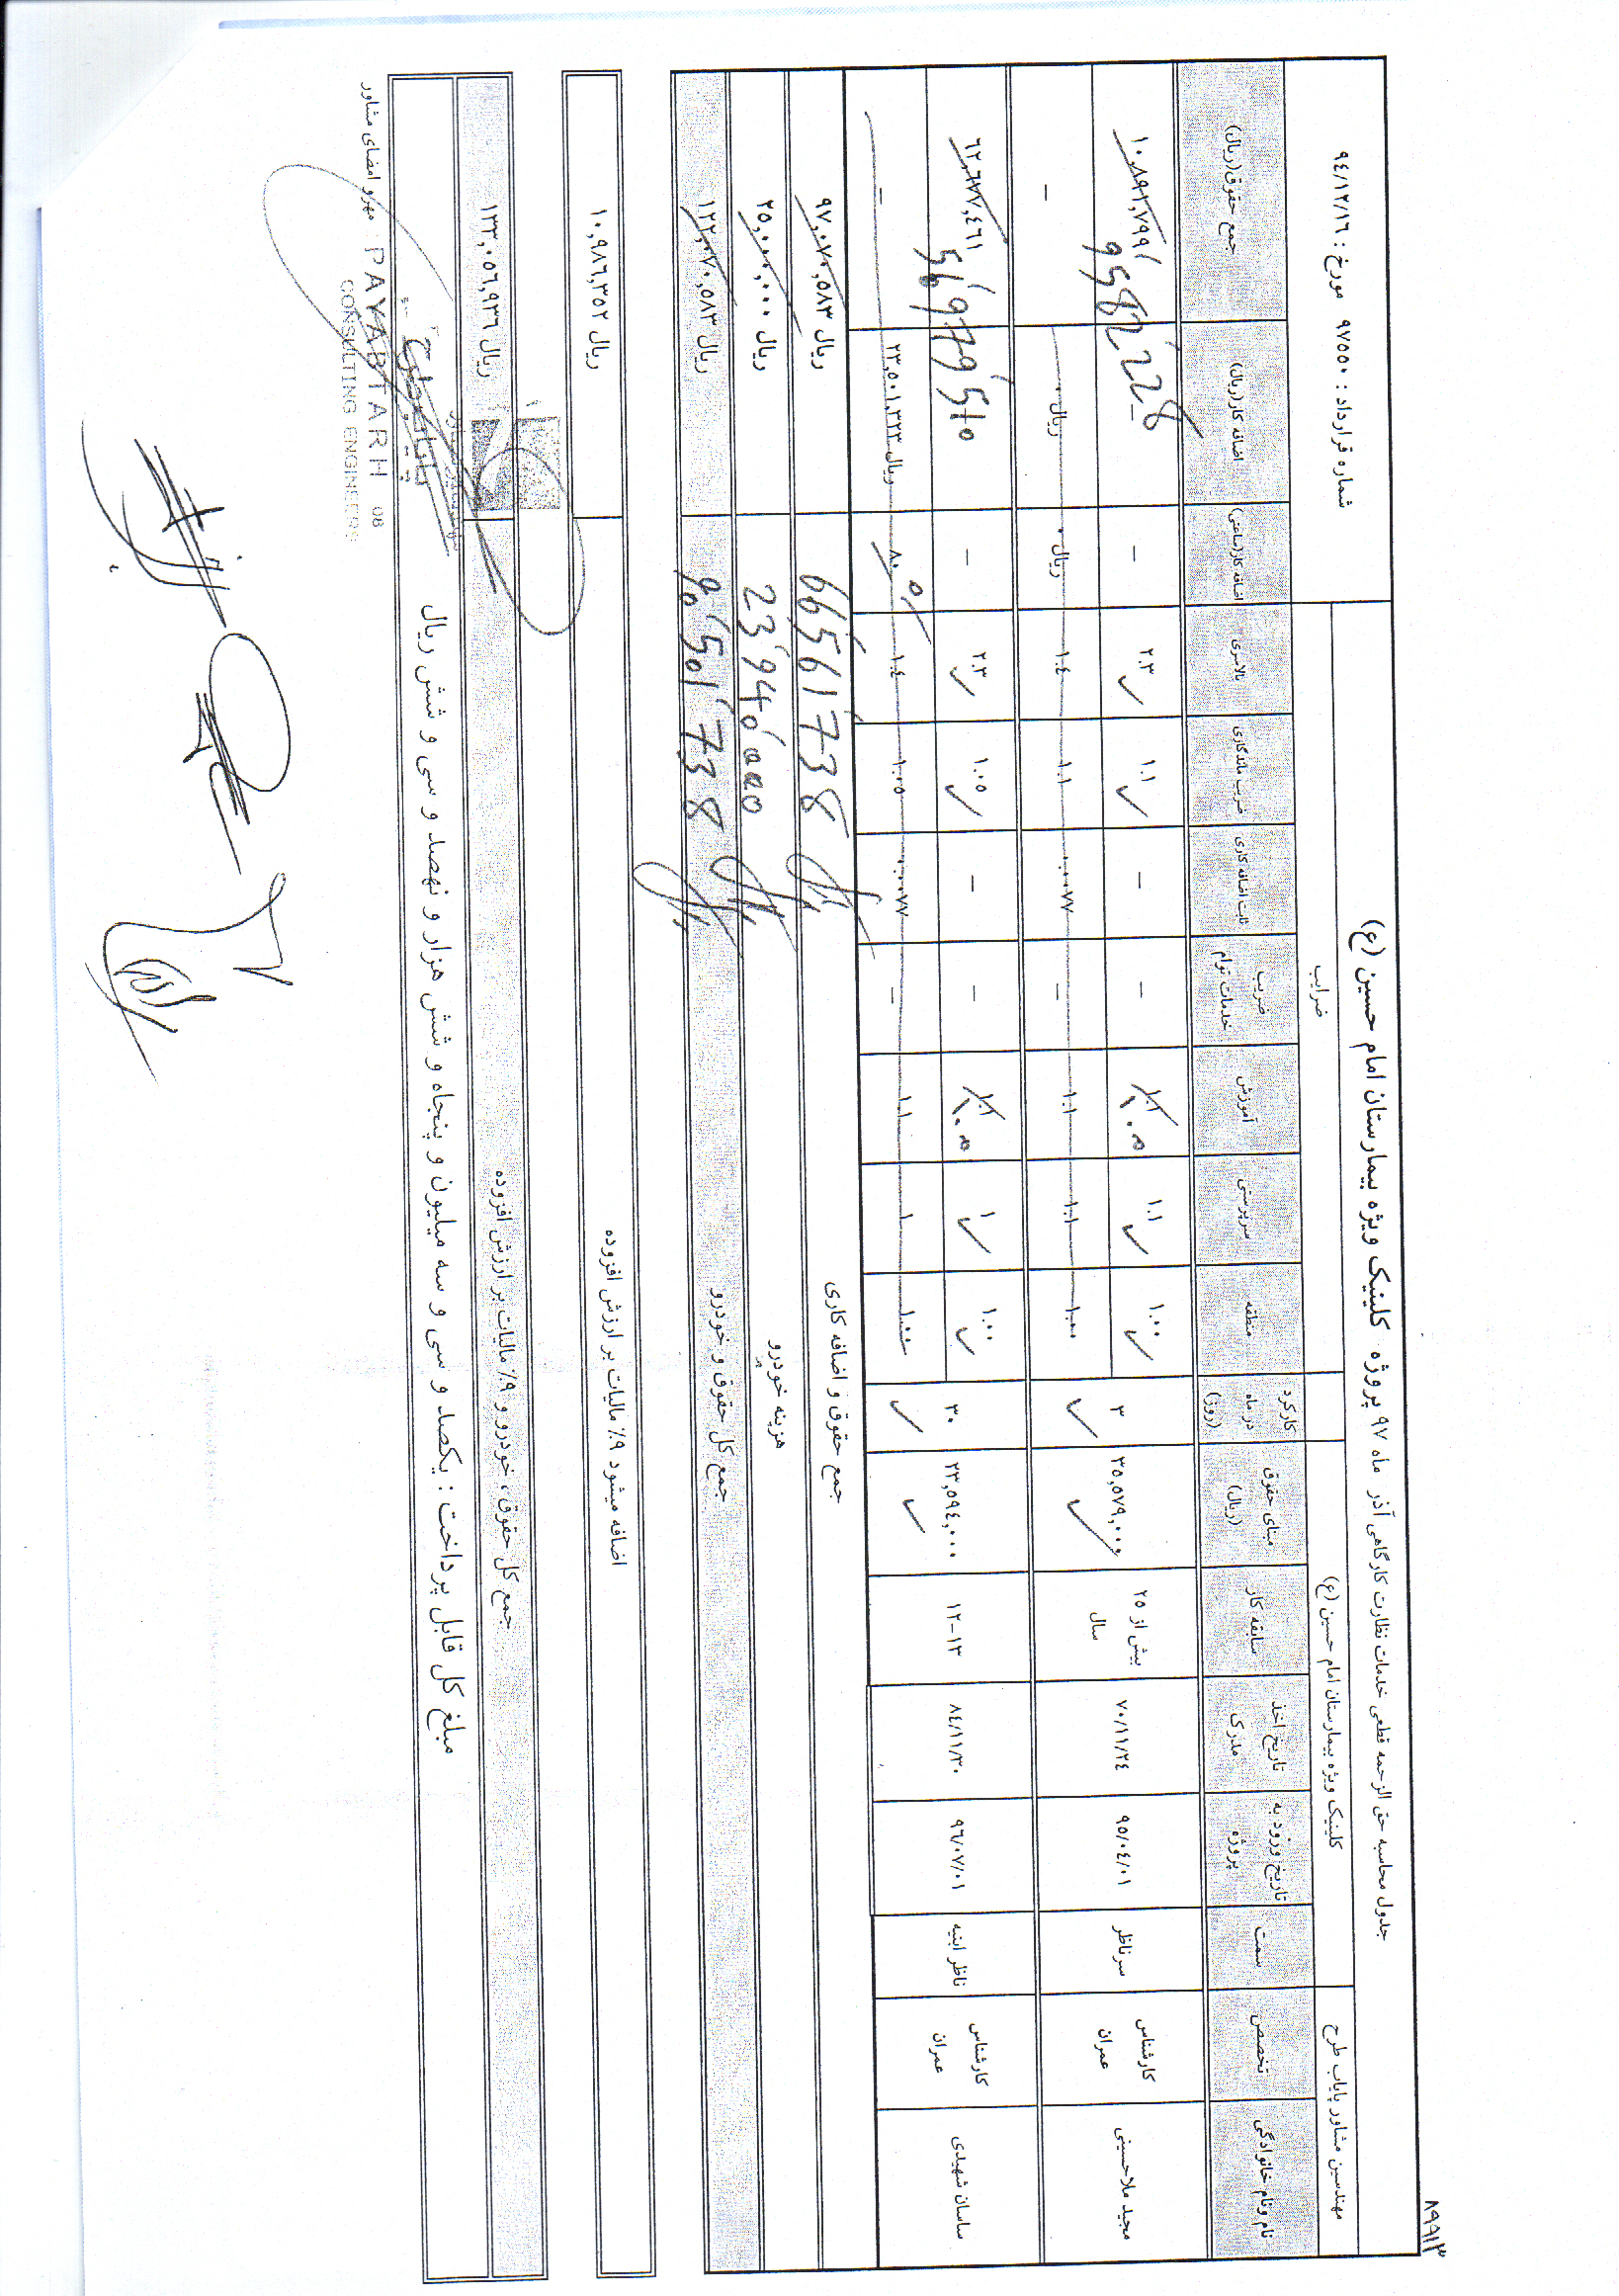 ۸۹۹۱۳
جدول محاسبه حق الزحمه قطعی خدمات نظارت کارگاهی آذر ماه ۹۷ پروژه کلینیک ویژه بیمارستان امام حسین (ع)
شماره قرارداد: ۹۷۵۵۰ مورخ: ۹۴/۱۲/۱۶
مهندسین مشاور پایاب طرح
کلینیک ویژه بیمارستان امام حسین (ع)
ضرایب
نام و نام خانوادگی
تخصص
سمت
تاریخ ورود به پروژه
تاریخ اخذ مدرک
سابقه کار
مبنای حقوق (ریال)
کارکرد در ماه (روز)
منطقه
سرپرستی
آموزش
ضریب خدمات توام
ثابت اضافه کاری
ضریب ماندگاری
بالاسری
اضافه کار(ساعتی)
اضافه کار(ریال)
جمع حقوق(ریال)
مجید ملاحسینی
کارشناس عمران
سر ناظر
۹۵/۰۴/۰۱
۷۰/۱۱/۲۴
بیش از ۲۵ سال
۳۵,۵۷۹,۰۰۰
۳
۱.۰۰ ۱.۱ ۱.۱ ۱.۰۵ - - ۱.۱ ۲.۳ - ۱۰,۸۹۲,۷۹۹ 9582228
۱.۰۰ ۱.۱ ۱.۱ - ۰.۰۰۷۷ ۱.۱ ۱.۴ ۰ ریال ۰ ریال -
ساسان شهیدی
کارشناس عمران
ناظر ابنیه
۹۶/۰۷/۰۱
۸۴/۱۱/۳۰
۱۲-۱۳
۲۳,۵۹۴,۰۰۰
۳۰
۱.۰۰ ۱ ۱.۱ ۱.۰۵ - - ۱.۰۵ ۲.۳ - ۶۲,۶۷۷,۴۶۱ 56979510
۱.۰۰ ۱ ۱.۱ - ۰.۰۰۷۷ ۱.۰۵ ۱.۴ ۸۰ ۲۳,۵۰۱,۳۲۳ ریال -
جمع حقوق و اضافه کاری 66561738 ۹۷,۰۷۰,۵۸۳ ریال
هزینه خودرو 23940000 ۲۵,۰۰۰,۰۰۰ ریال
جمع کل حقوق و خودرو 90501738 ۱۲۲,۰۷۰,۵۸۳ ریال
اضافه میشود ۹٪ مالیات بر ارزش افزوده ۱۰,۹۸۶,۳۵۲ ریال
جمع کل حقوق، خودرو و ۹٪ مالیات بر ارزش افزوده ۱۳۳,۰۵۶,۹۳۶ ریال
مبلغ کل قابل پرداخت : یکصد و سی و سه میلیون و پنجاه و شش هزار و نهصد و سی و شش ریال
مهر و امضای مشاور
پایاب طرح
PAYAB TARH 08
CONSULTING ENGINEERS